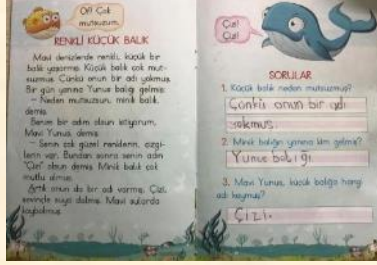 Of! Çok
mutsuzum.
RENKLİ KÜÇÜK BALIK
Mavi denizlerde renkli, küçük bir
balık yaşarmış. Küçük balık çok mut-
suzmuş. Çünkü onun bir adı yokmuş.
Bir gün yanına Yunus balığı gelmiş:
– Neden mutsuzsun, minik balık,
demiş.
Benim bir adım olsun istiyorum,
Mavi Yunus, demiş.
– Senin çok güzel renklerin, çizgi-
lerin var. Bundan sonra senin adın
"Çizi" olsun demiş. Minik balık çok
mutlu olmuş.
Artık onun da bir adı varmış. Çizi,
sevinçle suya dalmış. Mavi sularda
kaybolmuş.
Çizi!
Çizi!
SORULAR
1. Küçük balık neden mutsuzmuş?
Çünkü onun bir adı
yokmuş.
2. Minik balığın yanına kim gelmiş?
Yunus balığı.
3. Mavi Yunus, küçük balığa hangi
adı koymuş?
Çizi.